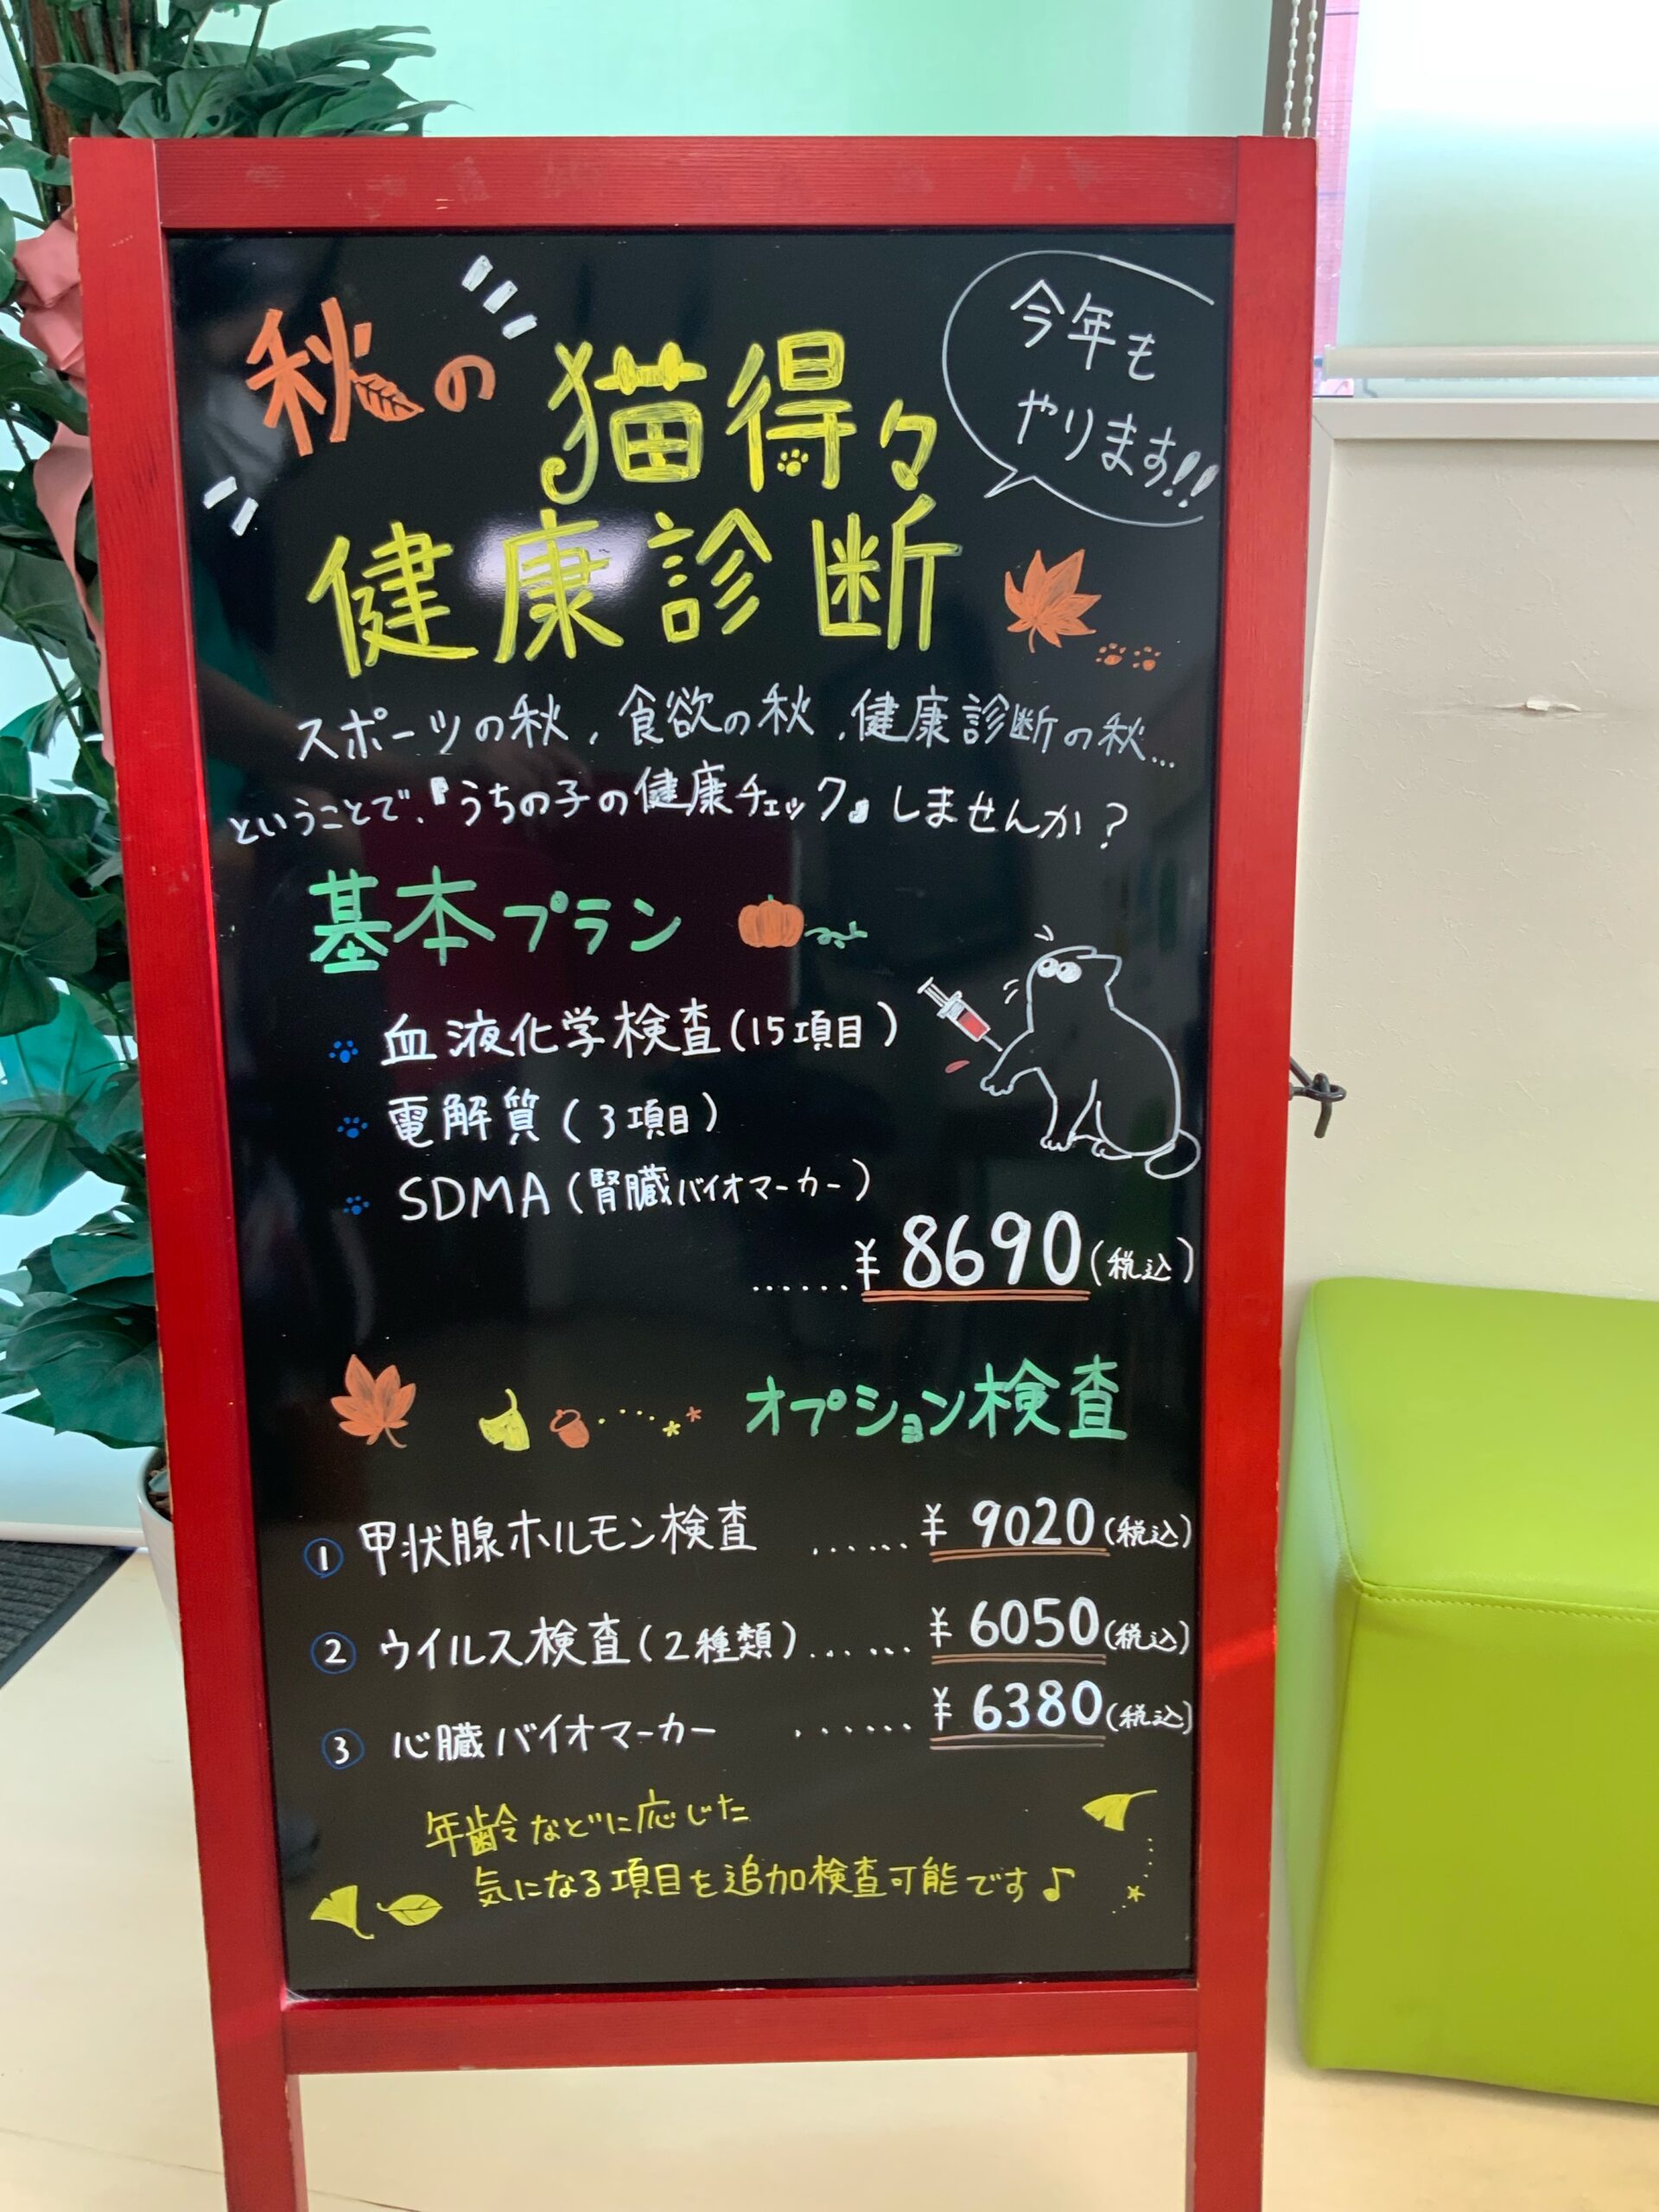 秋の
猫得々
健康診断
今年も
やります!!
スポーツの秋、食欲の秋、健康診断の秋...
ということで、『うちの子の健康チェック』しませんか？
基本プラン
血液化学検査(15項目)
電解質(3項目)
SDMA(腎臓バイオマーカー)
......¥8690(税込)
オプション検査
① 甲状腺ホルモン検査 ......¥9020(税込)
② ウイルス検査(2種類)......¥6050(税込)
③ 心臓バイオマーカー ......¥6380(税込)
年齢などに応じた
気になる項目を追加検査可能です♪